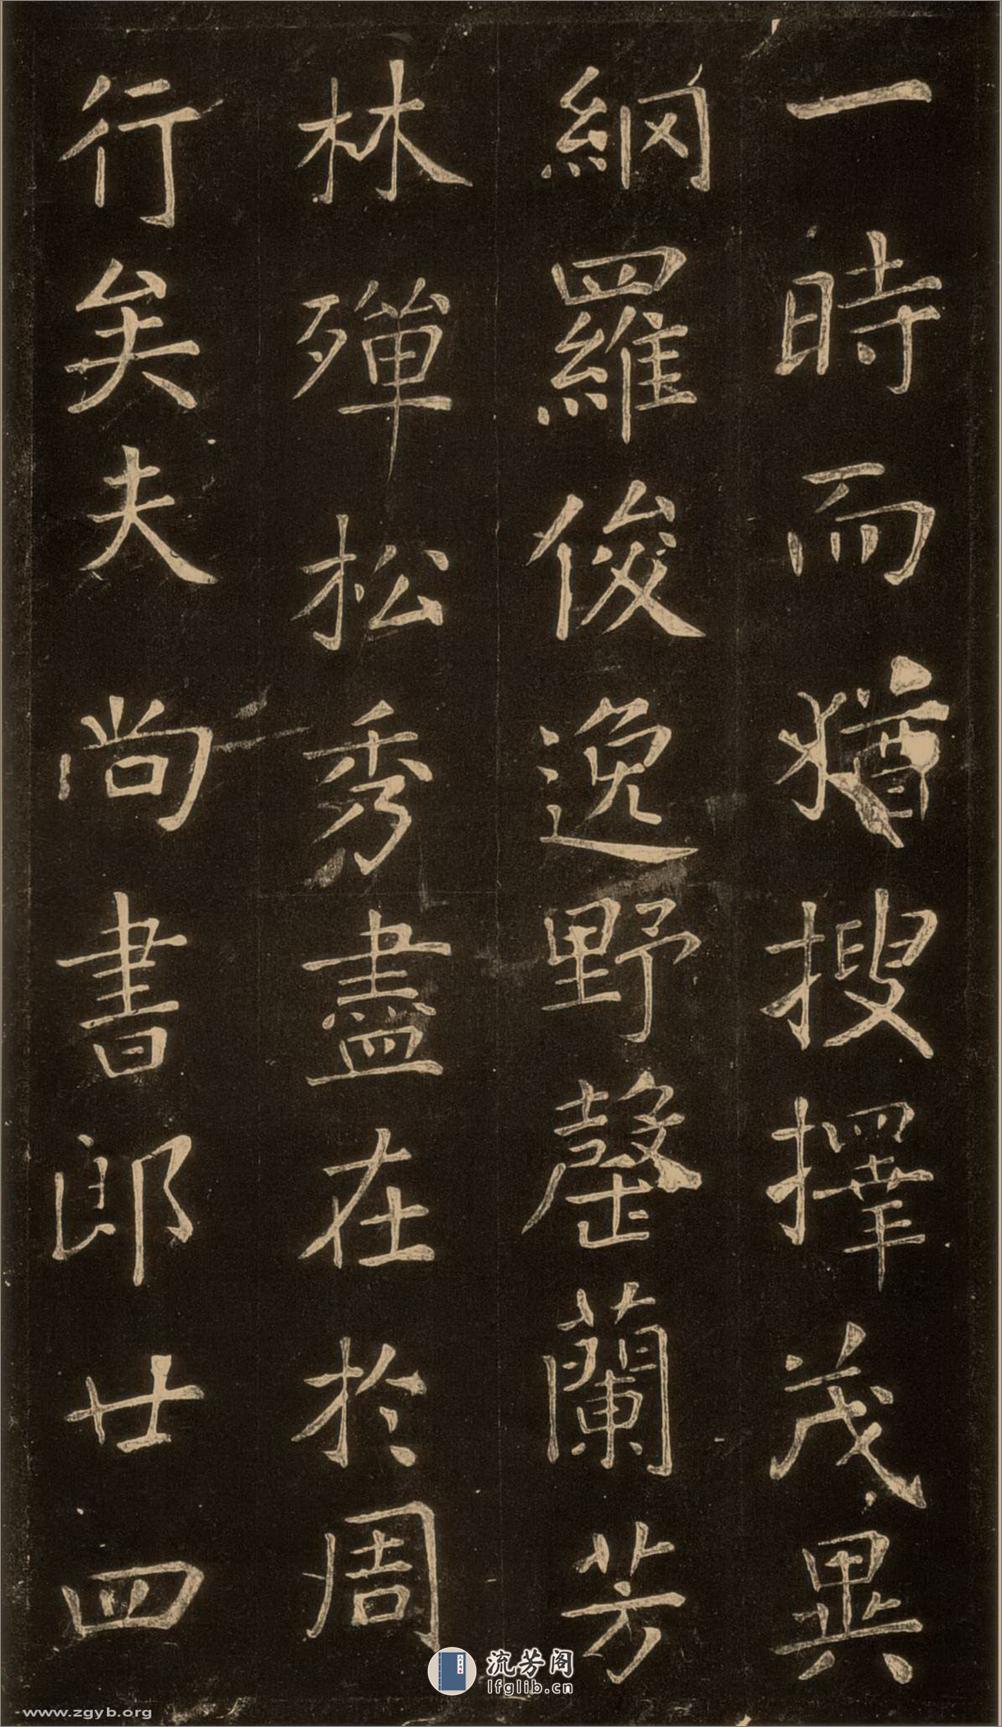 一時而猶搜擇茂異
網羅俊逸野罄蘭芳
林殫松秀盡在於周
行矣夫尚書郎廿四
流芳阁
lfglib.cn
www.zgyb.org